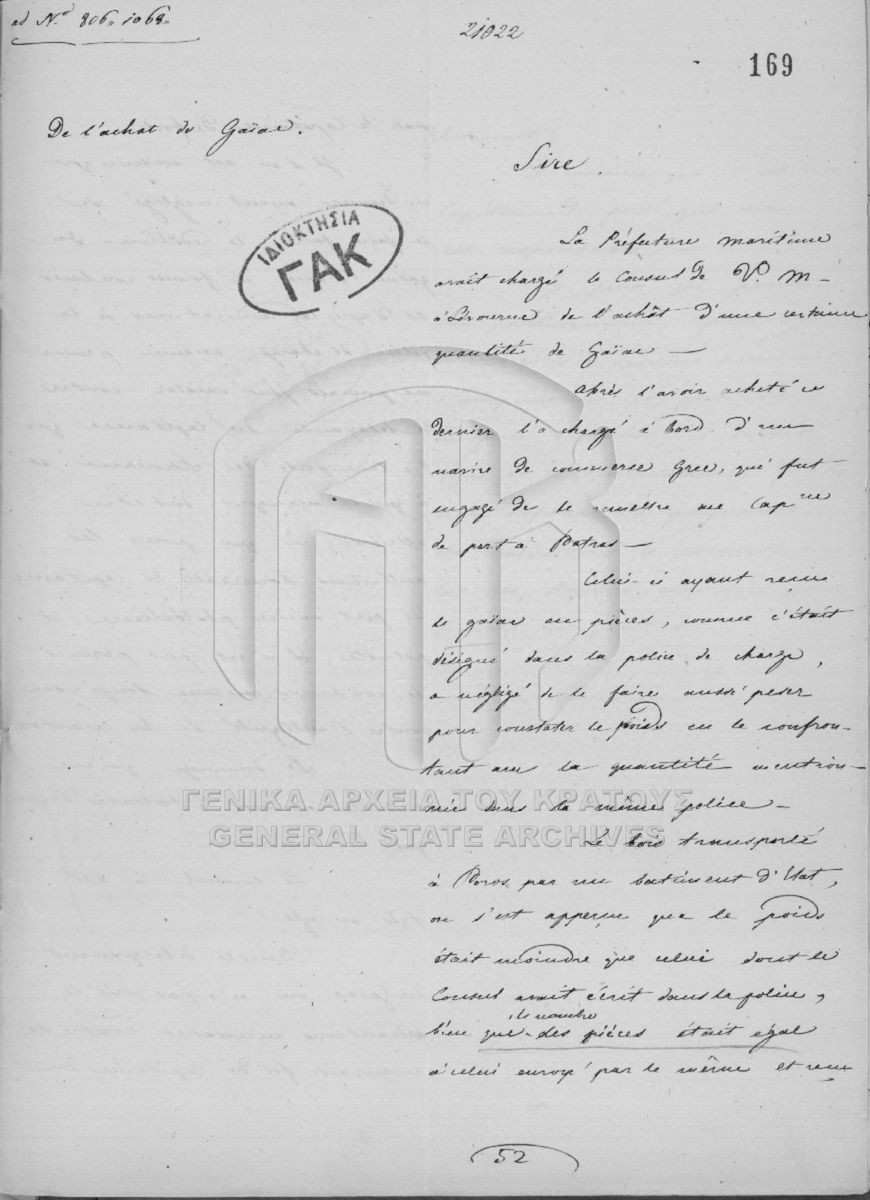 ad Nº 806. 1068.
21022
169
De l'achat de Gaïac.
Sire
ΙΔΙΟΚΤΗΣΙΑ
ΓΑΚ
La Préfecture maritime
avait chargé le Consul de V. M-
à Livourne de l'achât d'une certaine
quantité de Gaïac —
Après l'avoir acheté ce
dernier l'a chargé à bord d'un
navire de commerse Grec, qui fut
engagé de le remettre au Capne
de port à Patras —
Celui-ci ayant reçu
le gaïac en pièces, comme c'était
désigné dans la police de charge,
a négligé de le faire aussi peser
pour constater le poids en le confron-
tant avec la quantité mention-
née dans la même police —
Le bois transporté
à Poros par un batiment d'Etat,
on s'est apperçu que le poids
était moindre que celui dont le
Consul avait écrit dans la police,
bien que le nombre des pièces était égal
à celui envoyé par le même et reçu
52
ΓΕΝΙΚΑ ΑΡΧΕΙΑ ΤΟΥ ΚΡΑΤΟΥΣ
GENERAL STATE ARCHIVES